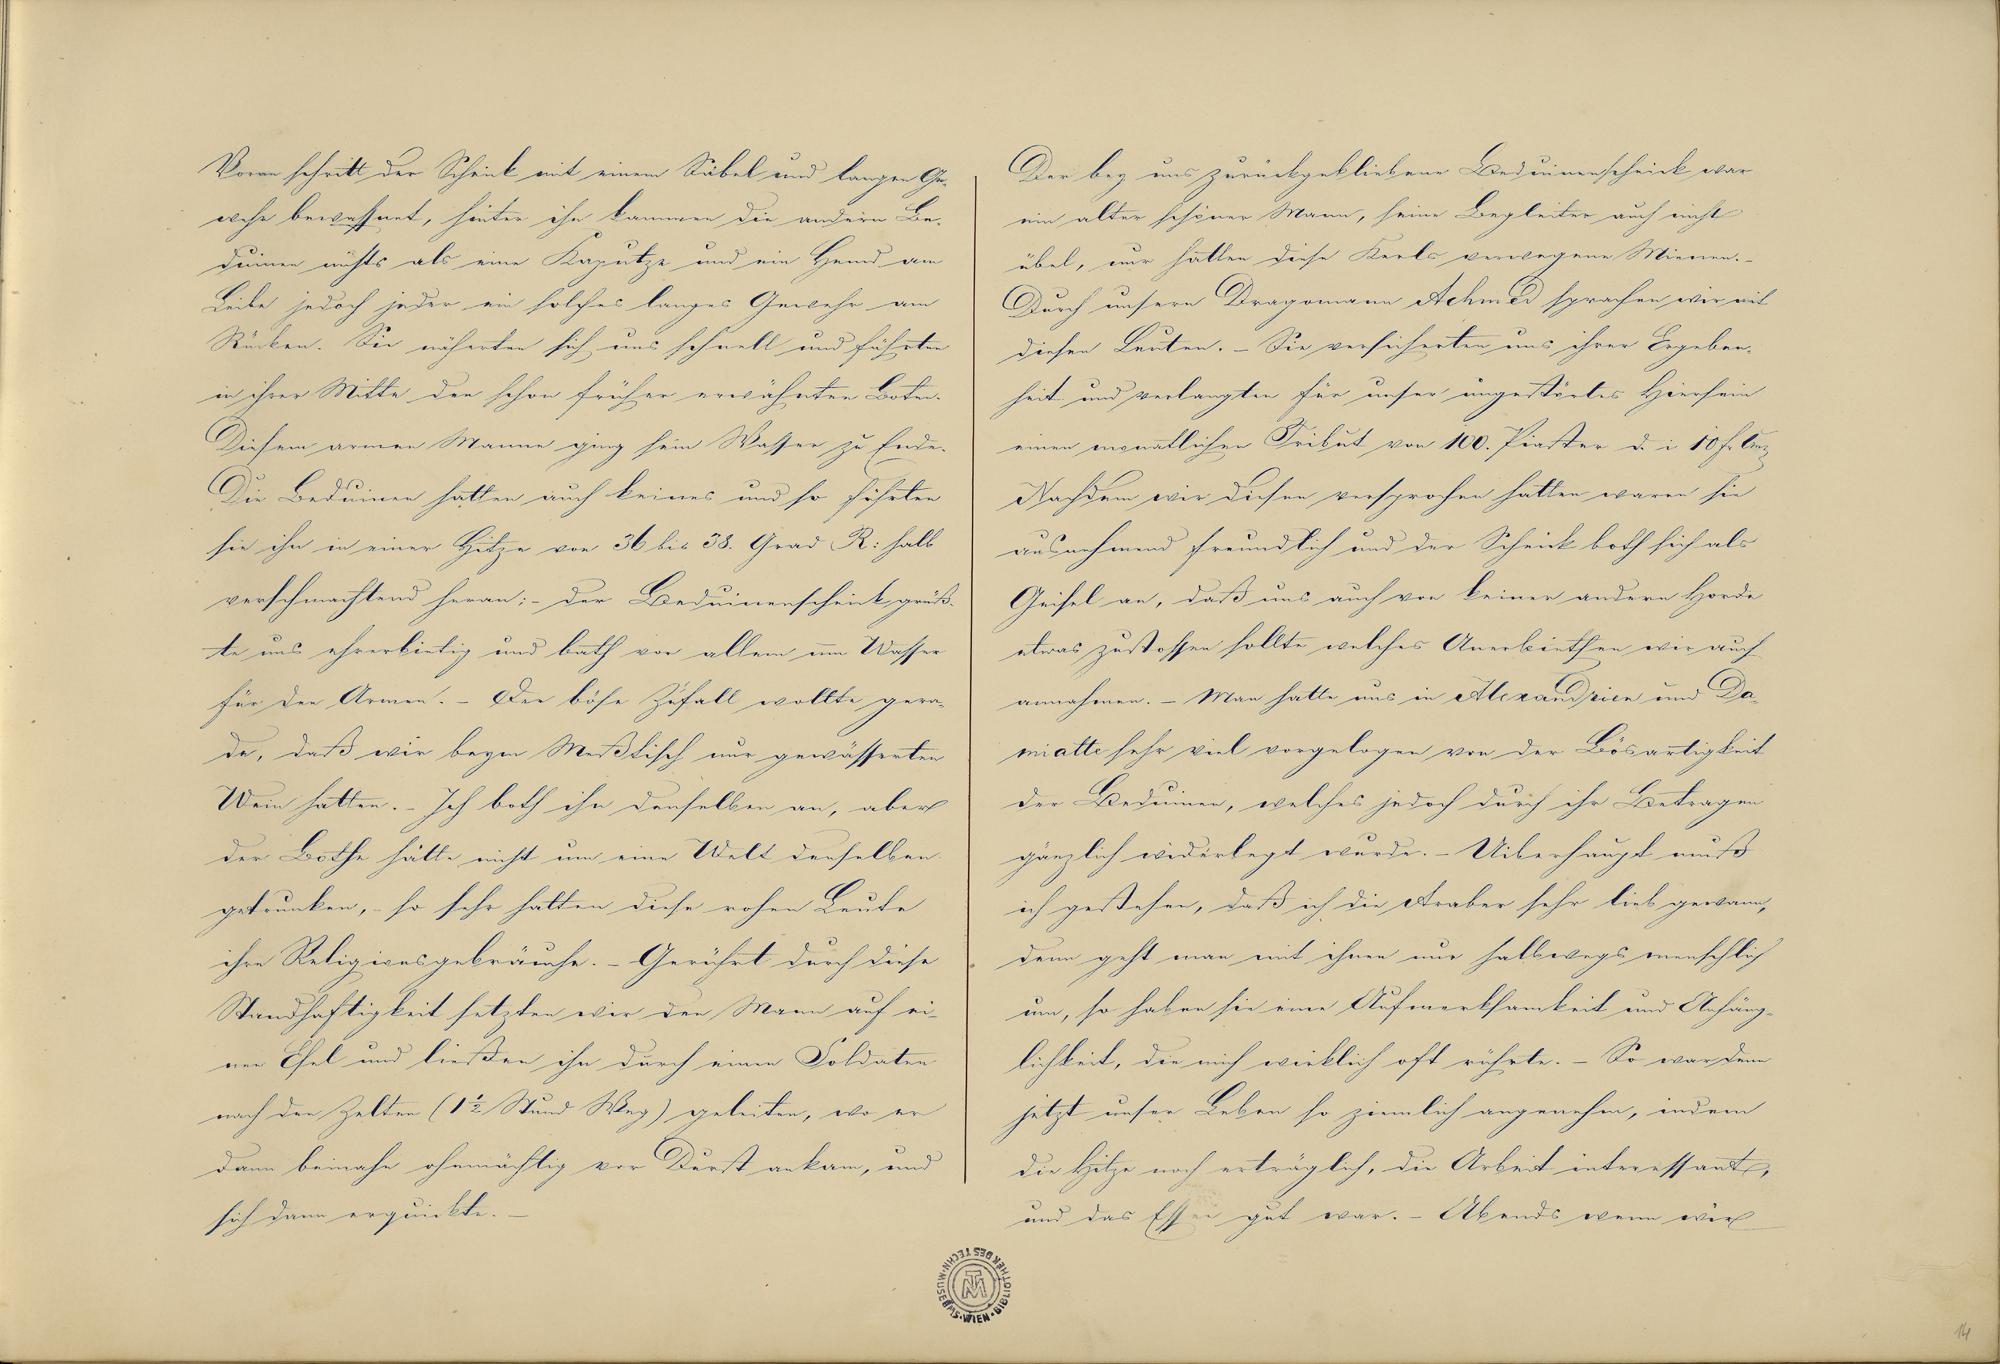 Voran schritt der Scheik mit einem Säbel und langen Ge-
wehr bewaffnet, hinter ihn kammen die andern Be-
duinen nichts als eine Kaputze und ein Hemd am
Leibe jedoch jeder ein solches langes Gewehr am
Rücken. Sie näherten sich uns schnell und führten
in ihrer Mitte den schon früher erwähnten Boten.
Diesem armen Manne ging sein Wasser zu Ende.
Die Beduinen hatten auch keines und so führten
sie ihn in einer Hitze von 36 bis 38. Grad R: halb
verschmachtend heran; - der Beduinenscheik grüß-
te uns ehrerbietig und bath vor allem um Wasser
für den Armen. - Der böse Zufall wollte gera-
de, daß wir beym Meßtisch nur gewässerten
Wein hatten. - Ich both ihn denselben an, aber
der Bothe hätte nicht um eine Welt denselben
getrunken, - so sehr halten diese rohen Leute
ihre Religionsgebräuche. - Gerührt durch diese
Standhaftigkeit setzten wir den Mann auf ei-
nen Esel und ließen ihn durch einen Soldaten
nach den Zelten (1 1/2 Stund Weg) geleiten, wo er
dann beinahe ohnmächtig vor Durst ankam, und
sich dann erquickte. -
Der bey uns zurückgebliebene Beduinenscheick war
ein alter schöner Mann, seine Begleiter auch nicht
übel, nur hatten diese Kerls verwegene Mienen. -
Durch unsern Dragomann Achmed sprachen wir mit
diesen Leuten. - Sie versicherten uns ihrer Ergeben-
heit und verlangten für unser ungestörtes Hiersein
einen monatlichen Tribut von 100. Piaster d. i 10 f.
Nachdem wir diesen versprochen hatten waren sie
ausnehmend freundlich und der Scheick both sich als
Geisel an, daß uns auch von keiner andern Horde
etwas zustossen sollte welches Anerbiethen wir auch
annahmen. - Man hatte uns in Alexandrien und Da-
miatte sehr viel vorgelogen von der Bösartigkeit
der Beduinen, welches jedoch durch ihr Betragen
gänzlich widerlegt wurde. - Uiberhaupt muß
ich gestehen, daß ich die Araber sehr lieb gewann,
denn geht man mit ihnen nur halbwegs menschlich
um, so haben sie eine Aufmerksamkeit und Anhäng-
lichkeit, die mich wirklich oft rührte. - So war denn
jetzt unser Leben so ziemlich angenehm, indem
die Hitze noch erträglich, die Arbeit interessant,
und das Essen gut war. - Abends wenn wir
BIBLIOTHEK DES TECHN. MUSEUMS. WIEN
TM
14